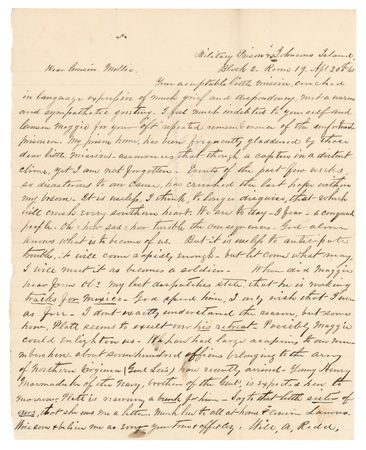 Military Prison Johnsons Island
Block 2. Room 19. Apl 20th 65
Dear Cousin Mollie.
Your acceptable little missive, couched
in language expressive of much grief and despondency, met a warm
and sympathetic greeting. I feel much indebted to yourself and
Cousin Maggie for your oft repeated remembrance of the unfortunate
prisoner. My prison home, has been frequently gladdened by those
dear little missives assuring us that though a captive in a distant
clime, yet I am not forgotten. Events of the past few weeks
so disastrous to our cause, has crushed the last hope within
my bosom. It is useless, I think, to longer disguise, that which
will crush every southern heart. We are to day - I fear - a conquered
people. Oh! how sad, how terrible the consequences. God alone
knows what is to become of us. But it is useless to anticipate
trouble, it will come rapidly enough - but let come what may,
I will meet it as becomes a soldier. When did Maggie
hear from My last dispatches state, that he is making
tracks for Mexico. God speed him, I only wish that I was
as free. I don't exactly understand the reason, but some
how Platt seems to exult over his retreat. Possibly Maggie
could enlighten us. We have had large accessions to our num
bers here. about seven hundred officers belonging to the army
of Northern Virginia (Genl Lees) have recently arrived. Young Henry
Marmaduke of the Navy, brother of the Genl, is expected here to
morrow. Platt is reserving a bunk for him. Say to that little sister of
yours, that she owes me a letter. Much love to all at home & Cousin
Write soon & believe me as ever your true & affctly. Will, A, Redd,